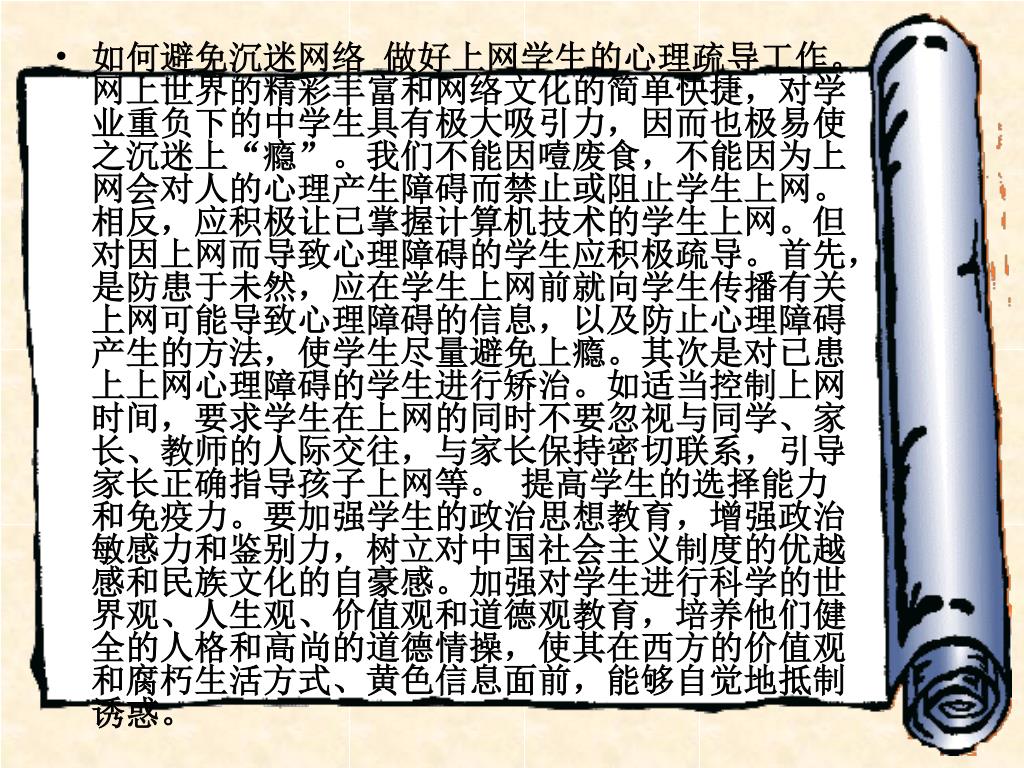 • 如何避免沉迷网络 做好上网学生的心理疏导工作。
网上世界的精彩丰富和网络文化的简单快捷，对学
业重负下的中学生具有极大吸引力，因而也极易使
之沉迷上“瘾”。我们不能因噎废食，不能因为上
网会对人的心理产生障碍而禁止或阻止学生上网。
相反，应积极让已掌握计算机技术的学生上网。但
对因上网而导致心理障碍的学生应积极疏导。首先，
是防患于未然，应在学生上网前就向学生传播有关
上网可能导致心理障碍的信息，以及防止心理障碍
产生的方法，使学生尽量避免上瘾。其次是对已患
上上网心理障碍的学生进行矫治。如适当控制上网
时间，要求学生在上网的同时不要忽视与同学、家
长、教师的人际交往，与家长保持密切联系，引导
家长正确指导孩子上网等。 提高学生的选择能力
和免疫力。要加强学生的政治思想教育，增强政治
敏感力和鉴别力，树立对中国社会主义制度的优越
感和民族文化的自豪感。加强对学生进行科学的世
界观、人生观、价值观和道德观教育，培养他们健
全的人格和高尚的道德情操，使其在西方的价值观
和腐朽生活方式、黄色信息面前，能够自觉地抵制
诱惑。